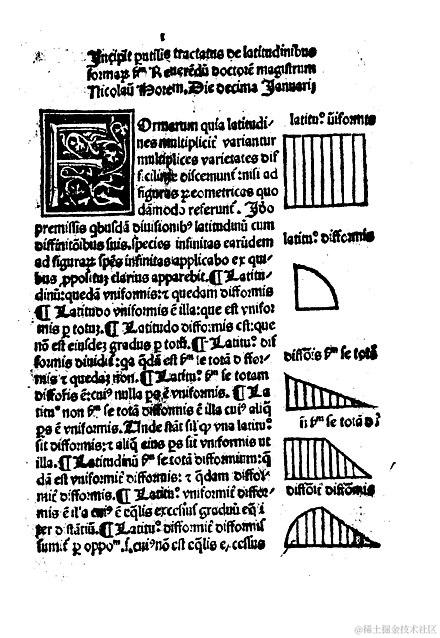 1
Incipit putilis tractatus de latitudinibus
formarꝫ ẜm Reuerẽdũ doctorẽ magistrum
Nicolaũ Horem. Die decima Januarij
Ormarum quia latitudi-
nes multiplicit̉ variantur
multiplices varietates dif
ficilime discernunt̉: nisi ad
figuras geometricas quo
dãmodo referunt̉. Ideo
premissis qbusdã diuisionibꝰ latitudinũ cum
diffinitõibus suis. species infinitas earũdem
ad figurarꝫ spẽs infinitas applicabo ex qui
bus ꝓpositũ clarius apparebit. ¶ Latitu-
dinũ: quedã vniformis: ⁊ quedam difformis
¶ Latitudo vniformis ẽ illa: que est vnifor
mis ꝑ totuꝫ. ¶ Latitudo difformis est: que
nõ est eiusdeꝫ gradus ꝑ totũ. ¶ Latituꝰ. dif
formis diuidit̉: qꝛ q̃dã est ẜm se totã differ-
mis ⁊ quedaꝫ non. ¶ Latituꝰ. ẜm se totam
difformis ẽ: cuiꝰ nulla ps ẽ vniformis. ¶ La
tituꝰ non ẜm se totã difformis ẽ illa cuiꝰ aliq̃
ps ẽ vniformis. Unde stãt sil̉ qꝫ vna latituꝰ
sit difformis: ⁊ aliq̃ eius ps sit vniformis ut
illa. ¶ Latitudinũ ẜm se totã difformium: q̃
dã est vniformit̉ difformis: ⁊ q̃dam diffor-
mit̉ difformis. ¶ Latituꝰ. vniformit̉ differ-
mis ẽ illa cuiꝰ ẽ eq̃lis excessus graduũ eq̃ i
ter distãtiũ. ¶ Latituꝰ. difformit̉ difformis
sumit̉ ꝑ oppoᵐ. s. cuiꝰ nõ est eq̃lis excessus
latituꝰ. ũiformis
latituꝰ. difformis
difformis ẜm se totã
ñ ẜm se totã
difformit̉ difformis
@稀土掘金技术社区